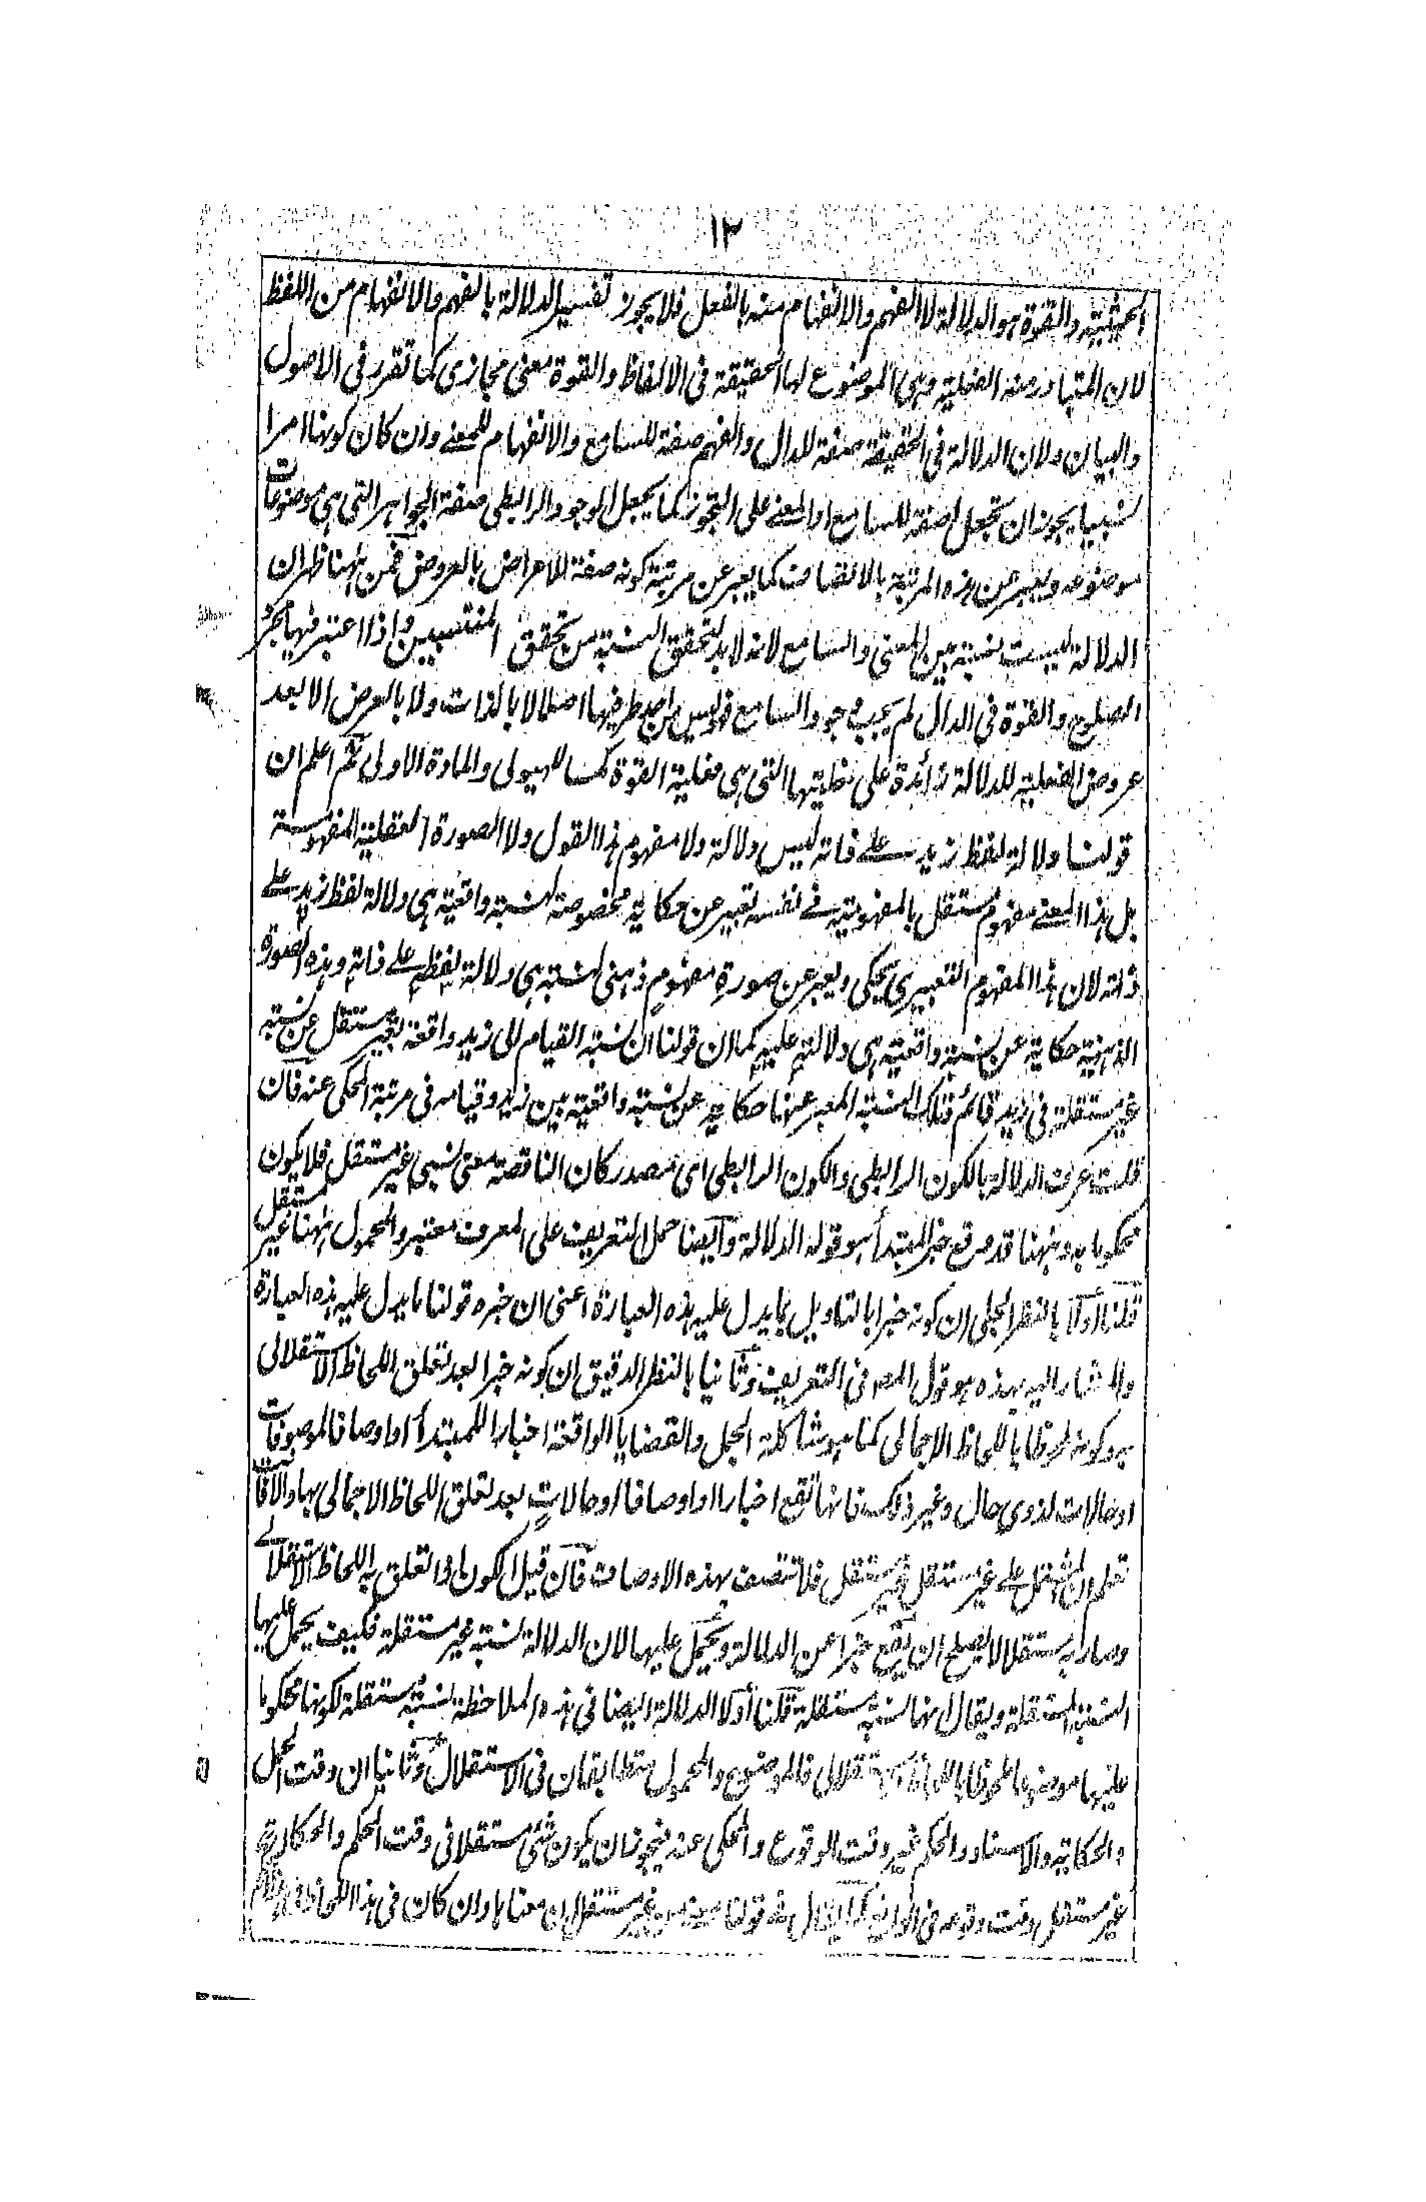 ١٣
الحيثية والقوة هو الدلالة لا الفهم والانفهام منه بالفعل فلا يجوز تفسير الدلالة بالفهم والانفهام من اللفظ
لان المتبادر منه الفعلية وهى الموضوع لها الحقيقة فى الالفاظ والقوة معنى مجازى كما تقرر فى الاصول
والبيان ولان الدلالة فى الحقيقة صفة للدال والفهم صفة للسامع والانفهام للمعنے وان كان كونها امرا
نسبيا يجوز ان تجعل صفة للسامع او المعنے على التجوز كما يجعل الوجود الرابطى صفة الجواهر التى هى موضوعات
موضوعه ويعبر عن هذه المرتبة بالاتصاف كما يعبر عن مرتبة كونه صفة للاعراض بالعروض فمن ههنا ظهر ان
الدلالة ليست نسبة بين المعنى والسامع لانه لابد لتحقق النسبة من تحقق المنتسبين واذا اعتبر فيها مجرد
الصلوح والقوة فى الدال لم يجب وجود السامع فليس من احد طرفيها اصلا لا بالذات ولا بالعرض الا بعد
عروض الفعلية للدلالة زائدة على فعليتها التى هى فعلية القوة كما للهيولى والمادة الاولى ثم اعلم ان
قولنا دلالة لفظ زيد علے ذاته ليس دلالة ولا مفهوم هذا القول ولا الصورة العقلية المفهومة
بل هذا المعنے مفهوم مستقل بالمفهومية فے نفسه تعبير عن حكاية مخصوصة لنسبة واقعية هى دلالة لفظ زيد علے
ذاته لان هذا المفهوم التعبيرى يحكى ويعبر عن صورة مفهوم ذهنى لنسبة هى دلالة لفظه علے ذاته وهذه الصورة
الذهنية حكاية عن نسبة واقعية هى دلالته عليه كما ان قولنا ان نسبة القيام الى زيد واقعة تعبير مستقل عن نسبة
غير مستقلة فى زيد قائم فتلك النسبة المعبر عنها حكاية عن نسبة واقعية بين زيد وقيامه فى مرتبة المحكى عنه فان
قلت عرف الدلالة بالكون الرابطى والكون الرابطى اى مصدر كان الناقصة معنى نسبى غير مستقل فلا يكون
محكوما به وههنا قد وقع خبر المبتدأ هو قوله الدلالة وايضا حمل التعريف على المعرف معتبر والمحمول ههنا غير مستقل
قلنا اولا بالنظر الجلى ان كونه خبرا بالتاويل بما يدل عليه هذه العبارة اعنى ان خبره قولنا ما يدل عليه هذه العبارة
والمشار اليه بهذه هو قول المصـ فى التعريف وثانيا بالنظر الدقيق ان كونه خبرا بعد تعلق اللحاظ الاستقلالى
به وكونه ملحوظا باللحاظ الاجمالى كما هو شاكلة الجمل والقضايا الواقعة اخبارا للمبتدأ او اوصافا لموصوفات
او حالات لذوى حال وغير ذلك فانها تقع اخبارا او اوصافا او حالات بعد تعلق اللحاظ الاجمالى بها والا
تعلم ان المشتمل علے غير مستقل غير مستقل فلا تتصف بهذه الاوصاف فان قيل الكون اذا تعلق به اللحاظ الاستقلالے
وصار به مستقلا لا يصلح ان يقع خبرا عن الدلالة ويحمل عليها لان الدلالة نسبة غير مستقلة فكيف يحمل عليها
النسبة المستقلة ويقال انها نسبة مستقلة قلنا اولا الدلالة ايضا فى هذه الملاحظة نسبة مستقلة لكونها محكوما
عليها موضوعا ملحوظا باللحاظ الاستقلالى فالموضوع والمحمول متطابقان فى الاستقلال وثانيا ان وقت الحمل
والحكاية والاسناد والحكم غير وقت الوقوع والمحكى عنه فيجوز ان يكون شئى مستقلا فى وقت الحكم والحكاية
غير مستقل وقت وقوعه فى الواقع كما يقال فے قولنا غير مستقل ان معناها وان كان فى هذا اللحاظ